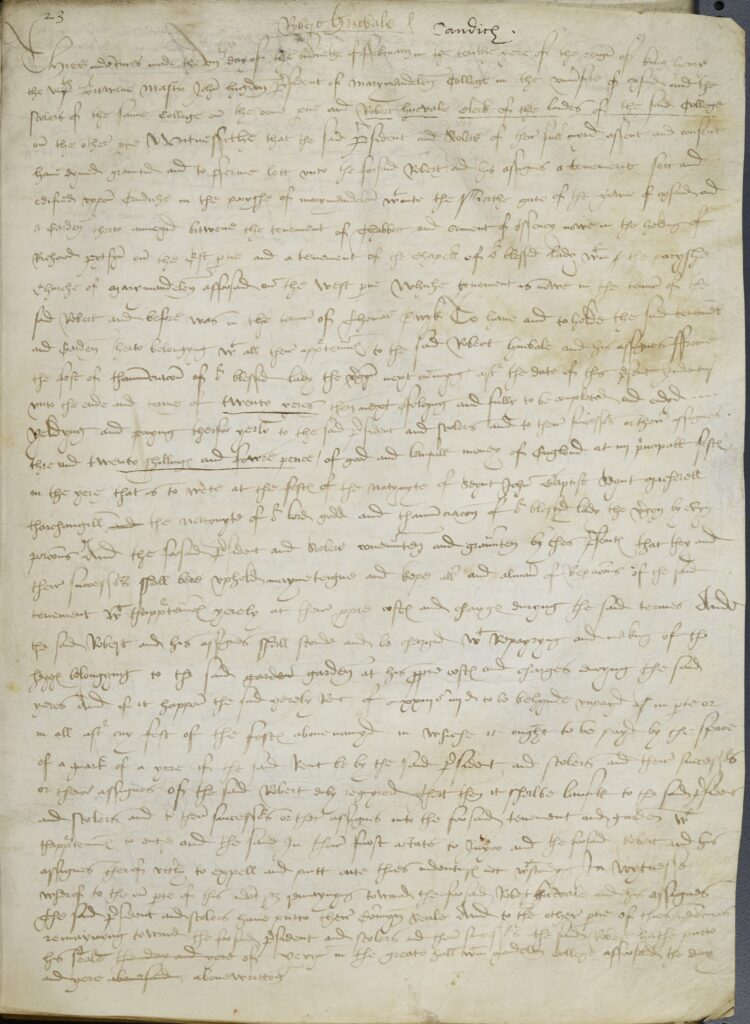 23
Robert Huchale Candich.
Thies indentures made the day of the moneth of in the tenthe yere of the reign of king henry
the viijth Bitwene Master John higdon President of marymawdelen College in the universite of oxford and the
scolers of the same College on the oone ptie and Robert huchale Clerk of the landes of the said College
on the other ptie Wittnessethe that the said president and scolers of their full mynd assent and consent
have demysed graunted and to fferme lett unto the forsaid Robert and his assignes a tenement sett and
edified uppon in the paryshe of marymawdelen wtoute the northe gate of the towne of oxford and
a Garden therto annexed bitwene the tenement of thabbot and covent of osseney nowe in the holding of
Richard on the Est ptie and a tenement of the chapell of or blessed lady wtin the paryshe
Churche of marymawdelen afforsaid on the West ptie Whiche tenement is nowe in the tenure of the
said Robert and before was in the tenure of Thomas To have and to holde the said tenement
and Garden therto belongyng wt all their apptenncs to the said Robert huchale and his assignes ffrome
the fest of thannunciacion of or blessed lady the virgyn next comyng after the date of this present Indenture
unto the ende and terme of twenty yeres then next folowyng and fully to be completed and ended
yeldyng and paying therfor yerly to the said president and scolers and to their successors or their assignes
thre and twenty shillings and fowre pence of good and laufull money of England at iiij principall festes
in the yere that is to wete at the festes of the natyvyte of Seynt John Baptist Seynt michaell
tharchangell the natyvyte of or lord god and thannunciacion of or blessed lady the virgyn by evyn
porcions And the forsaid president and scolers covenanten and graunten by thes presentes that they and
their successors shall bere uphold mayneteigne and kepe all and almaner of Repacions of the said
tenement wt thapptenncs yerely at their ppre costes and charges during the said termes And
the said Robert and his assignes shall stande and be charged wt Repayryng and making of the
belongyng to the said garden at his ppre costes and charges during the said
yeres And if it happen the said yerely Rent of xxiijs iiijd to be behynde unpayd in ptie or
in all aftr eny fest of the festes abovenamyd in whiche it ought to be payd by the space
of a quarter of a yere if the said Rent be by the said president and scolers and their successors
or their assignes of the said Robert required That then it shalbe laufull to the said president
and scolers and to their successors or their assignes into the forsaid tenement and garden wt
thapptenncs to entre and the said in their furst astate to and the forsaid Robert and his
assignes therof utterly to expell and putt oute thies indentures not wtstondyng In witnesse
wherof to the on ptie of this indentures remaynyng toward the forsaid Robert huchale and his assignes
the said president and scolers have putto their Comyn seale And to the other ptie of thies indentures
remaynyng toward the forsaid president and scolers and their successors the said Robert hathe putto
his seale yevyn in the greate hall wtin mawdelen College afforsaid the day
and yere abovewritten